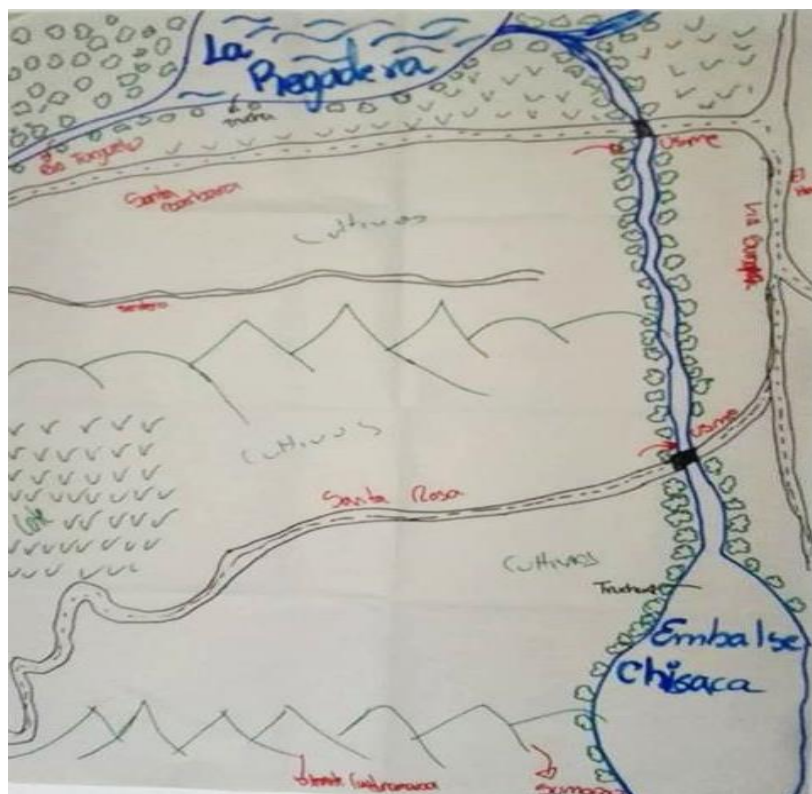 La
Regadera
Trucha
Rio Tunjuelo
usme
Santa
Barbara
Cultivos
sendero
Cultivos
usme
Santa Rosa
Cultivos
Truchas
Embalse
Chisaca
Sumapaz